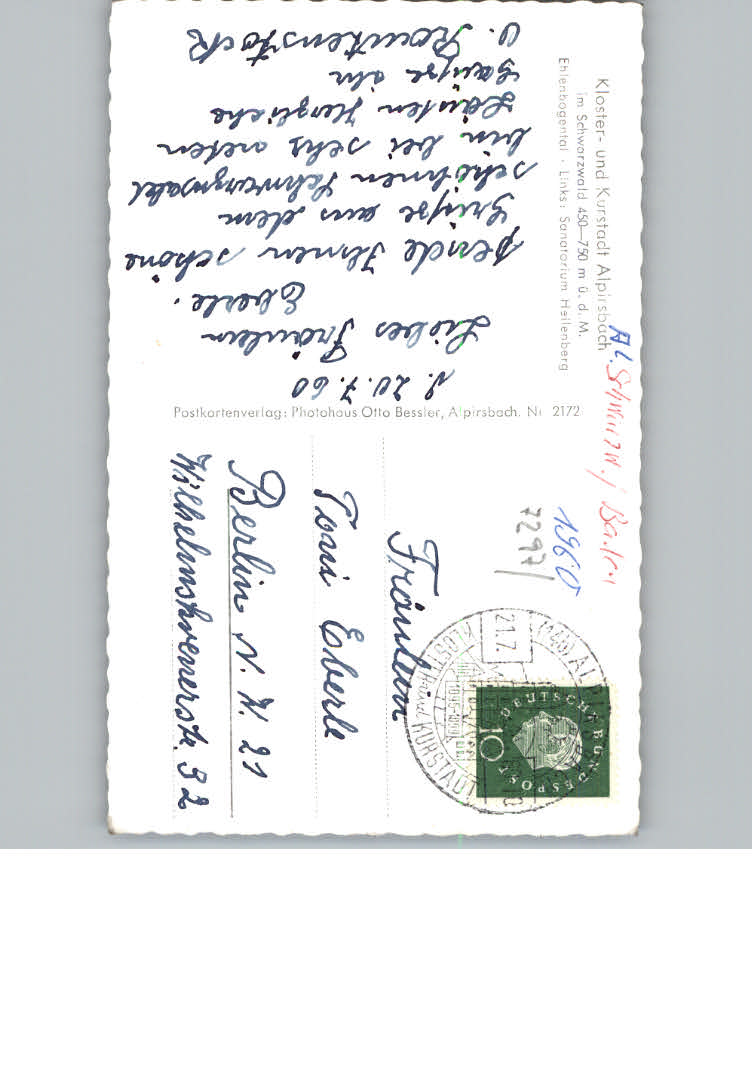 Kloster- und Kurstadt Alpirsbach
im Schwarzwald 450—750 m ü. d. M.
Ehlenbogental · Links: Sanatorium Heilenberg
20.7.60
Liebes Fräulein
Eberle.
sende Ihnen schöne
Grüße aus dem
schöhnen Schwarzwald
bin bei sehr netten
Leuten Herzliche
Grüße ihr
O. Rautenstock
Postkartenverlag: Photohaus Otto Bessler, Alpirsbach. Nr 2172
Al. Schwarzw. / Baden
1960
7297/
Fräulein
Toni Eberle
Berlin N. W. 21
Wilhelmshavenerstr. 32
DEUTSCHE BUNDESPOST
10
21.7.
KLOSTER- und KURSTADT